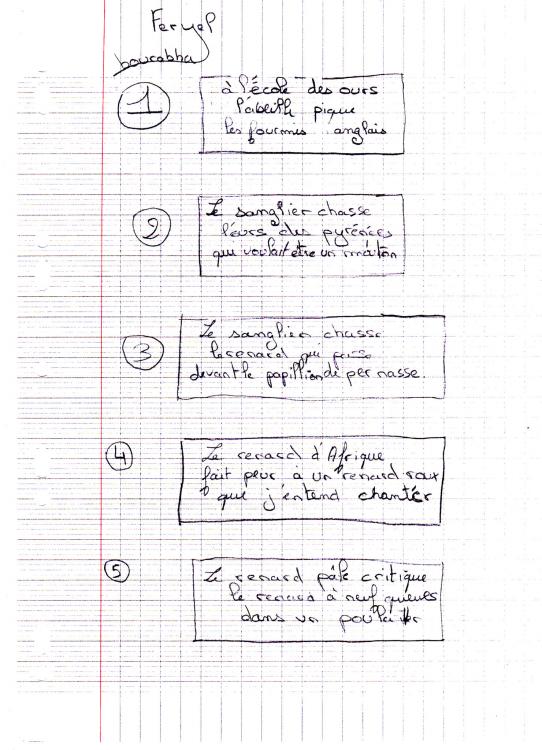 Feryel
bourabha
1
à l'école des ours
l'abeille pique
les fourmis anglais
2
Le sanglier chasse
l'ours des pyrénées
qui voulait être un mouton
3
Le sanglier chasse
le renard qui
devant le papillion de per nasse.
4
Le renard d'Afrique
fait peur à un renard roux
que j'entend chanter
5
Le renard pâle critique
le renard à neuf queues
dans un